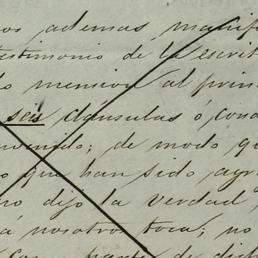 os ademas manif
testimonio de la escrit
lo mension al prin
seis cláusulas ó cond
uendo; de modo qu
o que han sido agr
no dijo la verdad
á nosotros toca; no